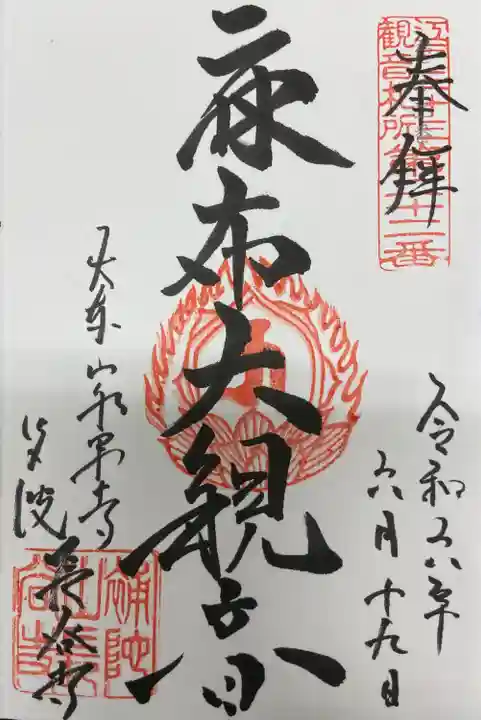 奉拝
江戸三十三観音札所第二十二番
令和六年
六月十九日
麻布大観音
大本山永平寺
別院 長谷寺